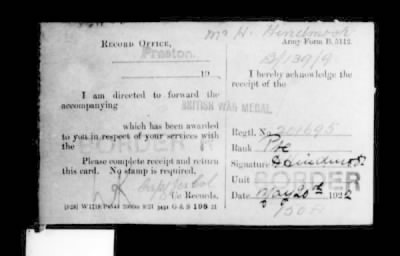 Army Form B. 5112.
RECORD OFFICE,
Preston.
19
I am directed to forward the
accompanying
BRITISH WAR MEDAL
which has been awarded
to you in respect of your services with
the
BORDER R
Please complete receipt and return
this card. No stamp is required.
i/c Records.
G & S 198
I hereby acknowledge the
receipt of the
Regtl. No. 201695
Rank Pte
Signature
Unit
BORDER
Date May 20th 192